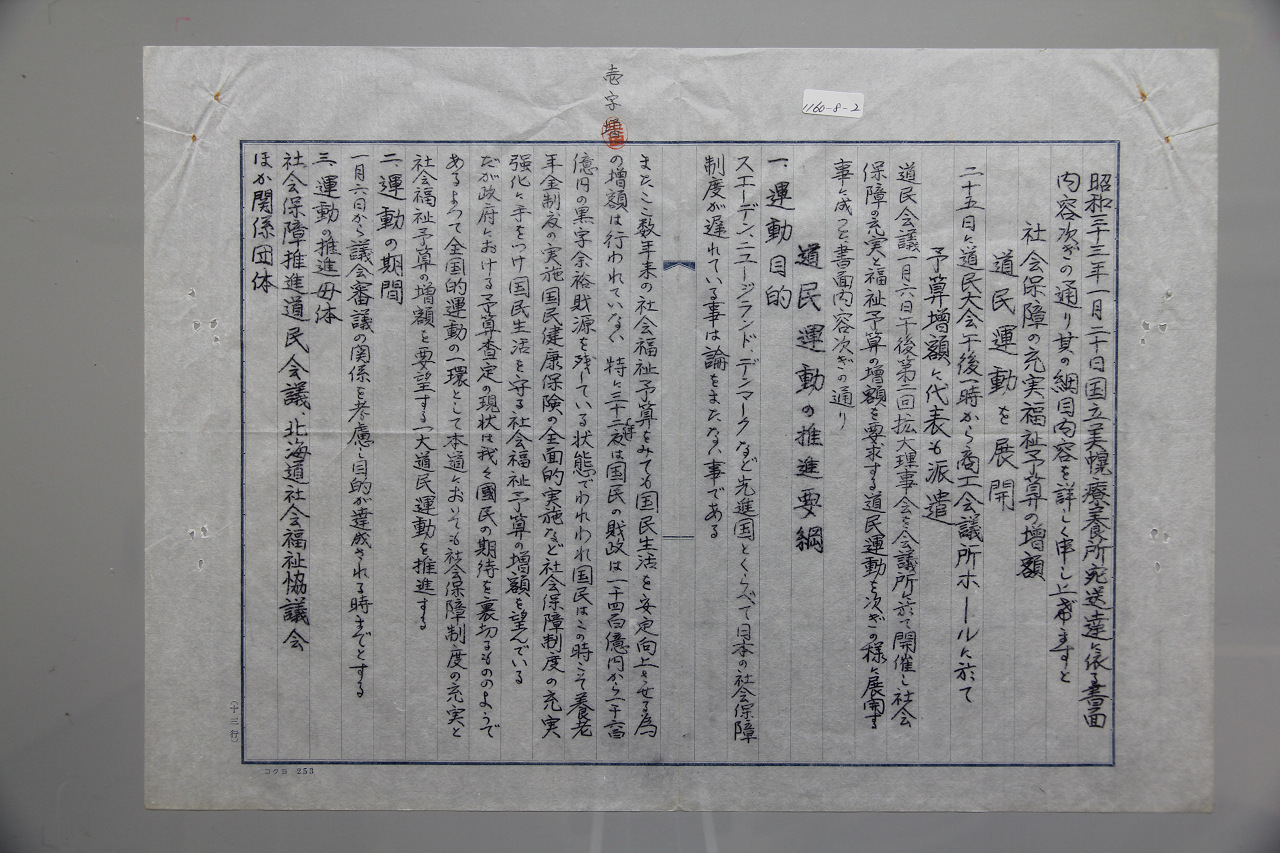 1160-8-2
壱字増
昭和三十三年一月二十日国立美幌療養所宛送達に依る書面
内容次ぎの通り其の細目内容を詳しく申し上げますと
社会保障の充実福祉予算の増額
道民運動を展開
二十五日に道民大会午後一時から商工会議所ホールに於て
予算増額に代表も派遣
道民会議一月六日午後第二回拡大理事会を会議所に於て開催し社会
保障の充実と福祉予算の増額を要求する道民運動を次ぎの様に展開する
事に成つと書面内容次ぎの通り
道民運動の推進要綱
一、運動目的
スエーデン、ニュージランド、デンマークなど先進国とくらべて日本の社会保障
制度が遅れている事は論をまたない事である
またここ数年来の社会福祉予算をみても国民生活を安定向上させる為
の増額は行われていない 特に三十二年度は国民の財政は一千四百億円から一千六百
億円の黒字余裕財源を残している状態でわれわれ国民はこの時こそ養老
年金制度の実施国民健康保険の全面的実施など社会保障制度の充実
強化に手をつけ国民生活を守る社会福祉予算の増額を望んでいる
だが政府における予算査定の現状は我々國民の期待を裏切るもののようで
あるよつて全国的運動の一環として本道においても社会保障制度の充実と
社会福祉予算の増額を要望する一大道民運動を推進する
二、運動の期間
一月六日から議会審議の関係を考慮し目的が達成される時までとする
三、運動の推進母体
社会保障推進道民会議、北海道社会福祉協議会
ほか関係団体
(十三行)
コクヨ 253